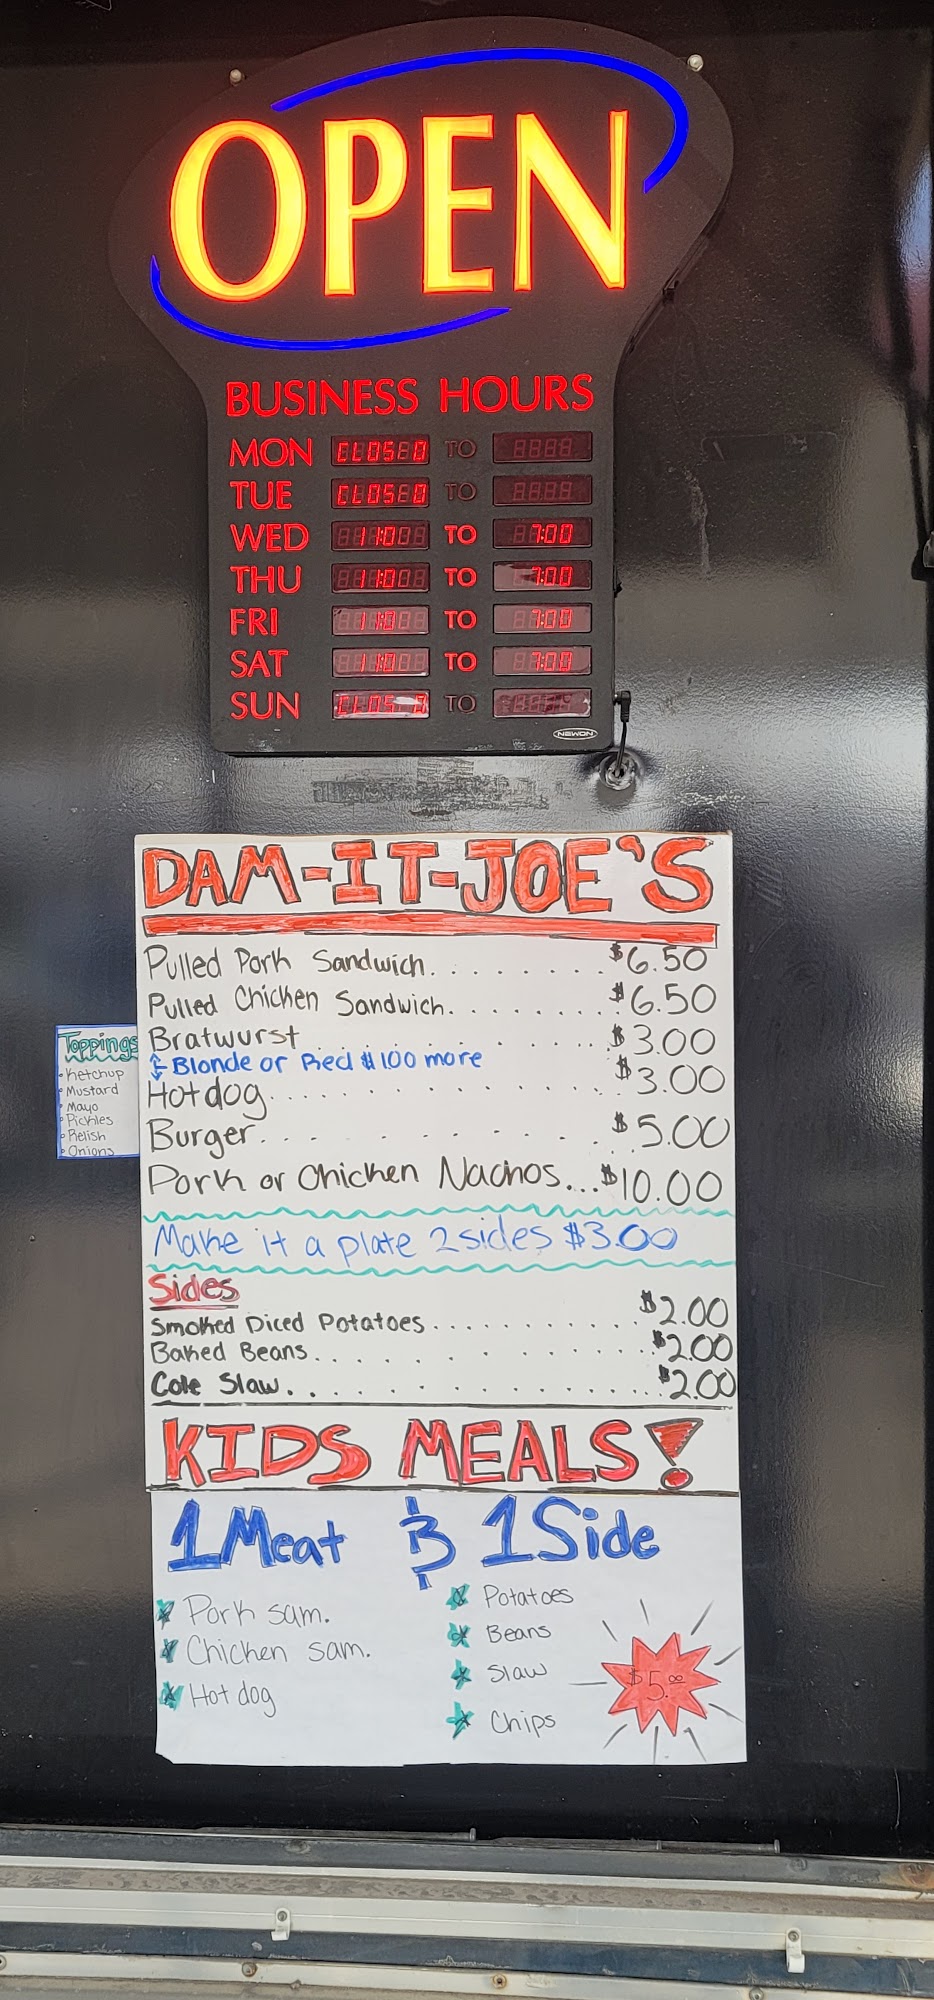 OPEN
BUSINESS HOURS
MON CLOSED TO
TUE CLOSED TO
WED 11:00 TO 7:00
THU 11:00 TO 7:00
FRI 11:00 TO 7:00
SAT 11:00 TO 7:00
SUN CLOSED TO
NEWON
DAM-IT-JOE'S
Pulled Pork Sandwich........ $6.50
Pulled Chicken Sandwich........ $6.50
Bratwurst........ $3.00
Blonde or Red $1.00 more
Hotdog........ $3.00
Burger........ $5.00
Pork or Chicken Nachos...$10.00
Make it a plate 2 sides $3.00
Sides
Smoked Diced Potatoes........ $2.00
Baked Beans........ $2.00
Cole Slaw........ $2.00
KIDS MEALS!
1 Meat & 1 Side
Pork sam.
Chicken sam.
Hot dog
Potatoes
Beans
Slaw
Chips
$5.00
Toppings
Ketchup
Mustard
Mayo
Pickles
Relish
Onions